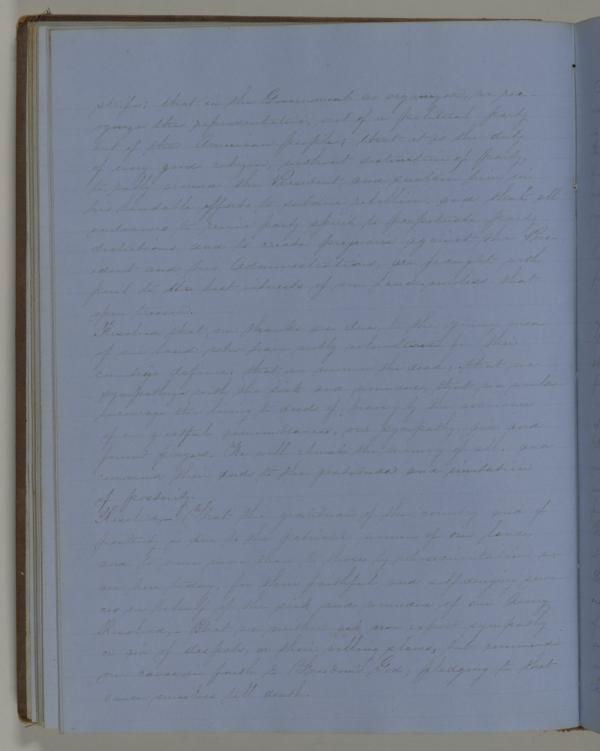 that in the Government so organized, we rec-
ognize the representative, not of a political party
but of the American people; that it is the duty
of every good citizen, without distinction of party,
to rally around the President and sustain him in
his laudable efforts to subdue rebellion, and that all
endeavors to revive party spirit to perpetuate party
distinctions and to create prejudice against the Pres-
ident and his Administration, are fraught with
peril to the best interests of our land, endless that
open treason.
Resolved that our thanks are due to the young men
of our land who have nobly volunteered for their
country's defense, that we mourn the dead, that we
sympathize with the sick and wounded, that we
encourage the living to deeds of bravery by the assurance
of our grateful remembrance, our sympathy, and
prayers. We will cherish the memory of all, and
commend their deeds to the gratitude and imitation
of posterity.
Resolved,- That the gratitude of the country and of
posterity is due to the patriotic women of our land,
and to none more than to those by whose invitation we
are here today, for their faithful and self denying servi-
ces in behalf of the sick and wounded of our Army.
Resolved,- That we neither ask nor expect sympathy
or aid of despots, or their willing slaves, but commend
our cause in faith to Freedom's God, pledging to that
cause ourselves till death.